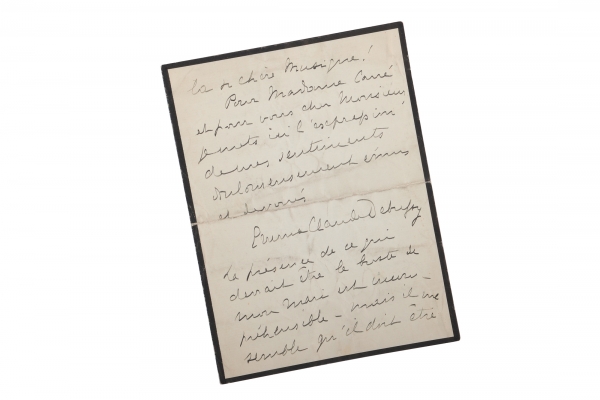 la si chère Musique !
Pour Madame Carré
et pour vous cher Monsieur
je mets ici l'expression
de mes sentiments
douloureusement émus
et dévoués
Emma Claude Debussy
La présence de ce qui
devait être le buste de
mon mari est incom-
préhensible - mais il me
semble qu'il doit être